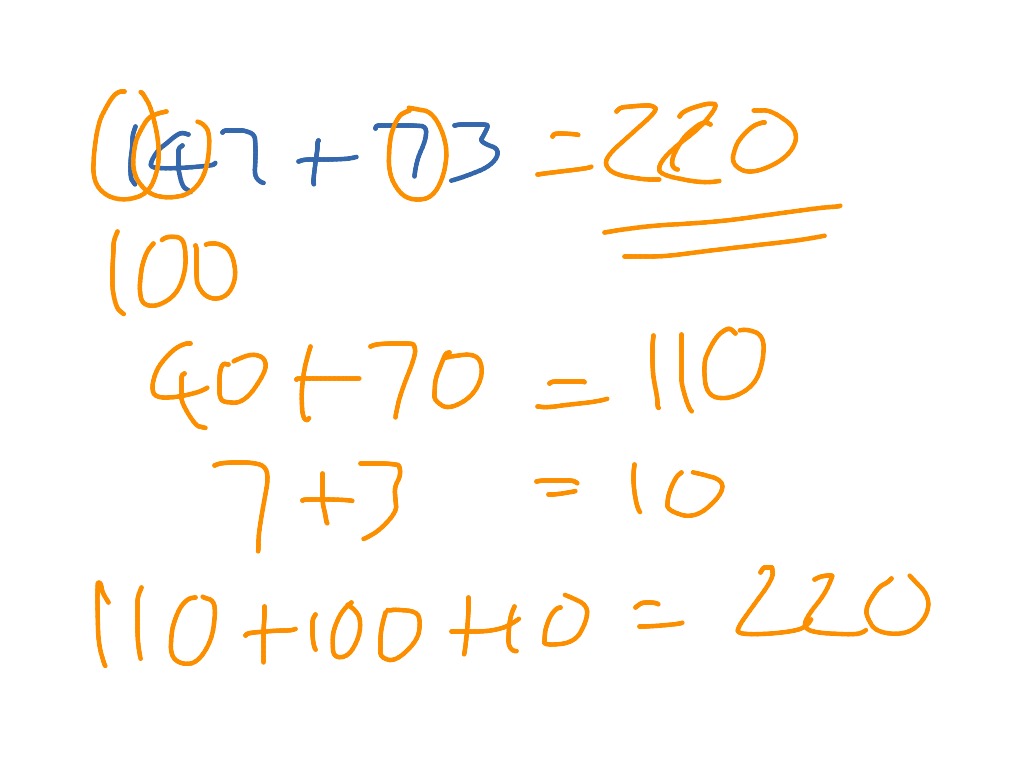 147 + 73 = 220
100
40 + 70 = 110
7 + 3 = 10
110 + 100 + 10 = 220